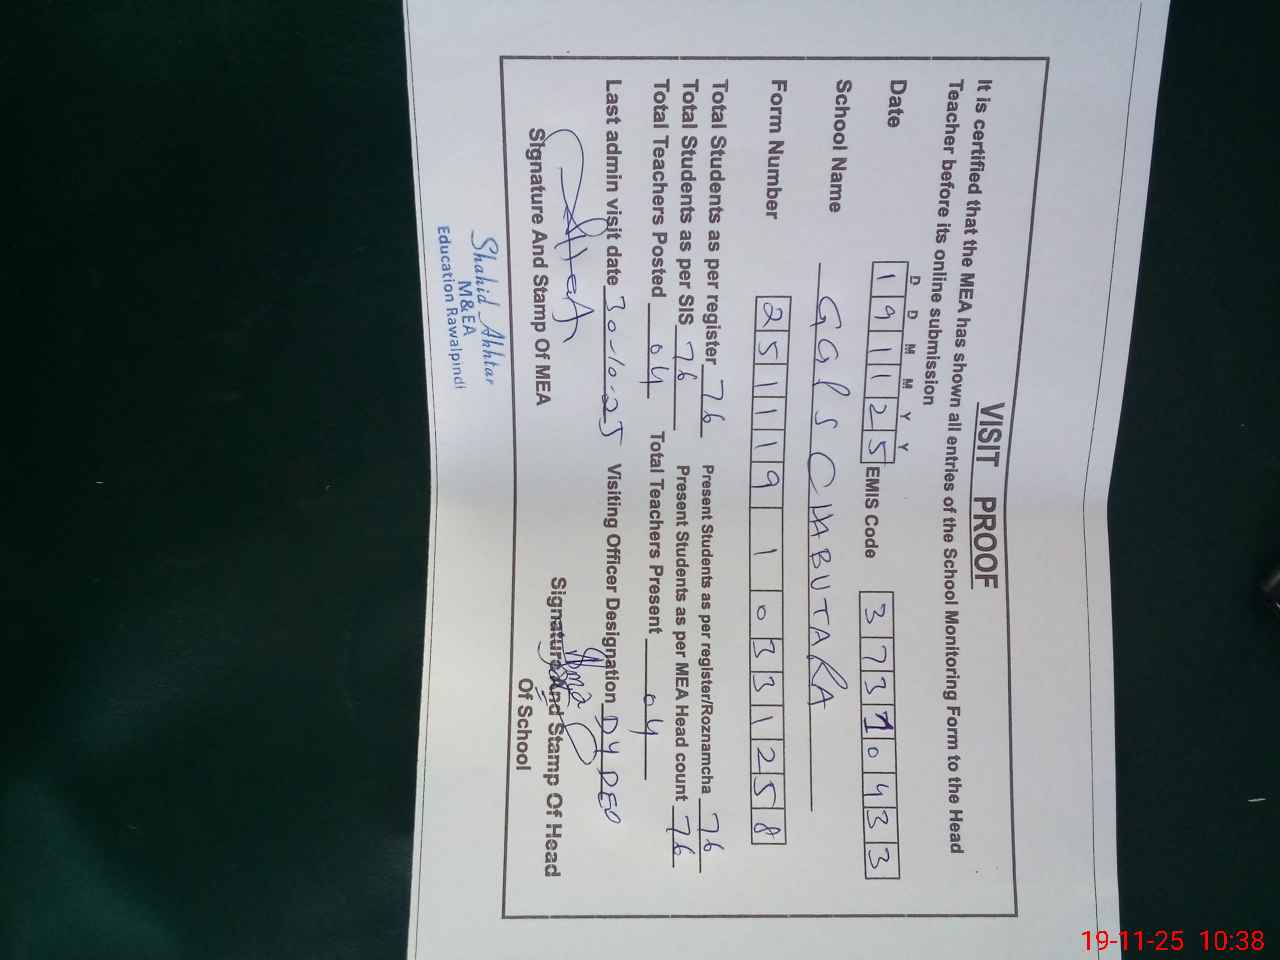 VISIT PROOF
It is certified that the MEA has shown all entries of the School Monitoring Form to the Head
Teacher before its online submission
D D M M Y Y
Date 191125 EMIS Code 37310433
School Name GGPS CHABUTARA
Form Number 251119 1 0331258
Total Students as per register 76 Present Students as per register/Roznamcha 76
Total Students as per SIS 76 Present Students as per MEA Head count 76
Total Teachers Posted 04 Total Teachers Present 04
Last admin visit date 30-10-25 Visiting Officer Designation DY DEO
Signature And Stamp Of MEA Signature And Stamp Of Head
Of School
Shahid Akhtar
M&EA
Education Rawalpindi
19-11-25 10:38